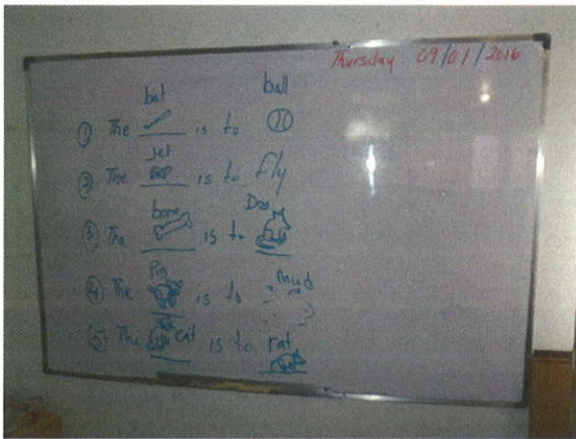 Thursday 09/01/2016
bat ball
① The ___ is to
jet
② The ___ is to fly
bone Dog
③ The ___ is to
Pig Mud
④ The ___ is to
⑤ The cat is to rat